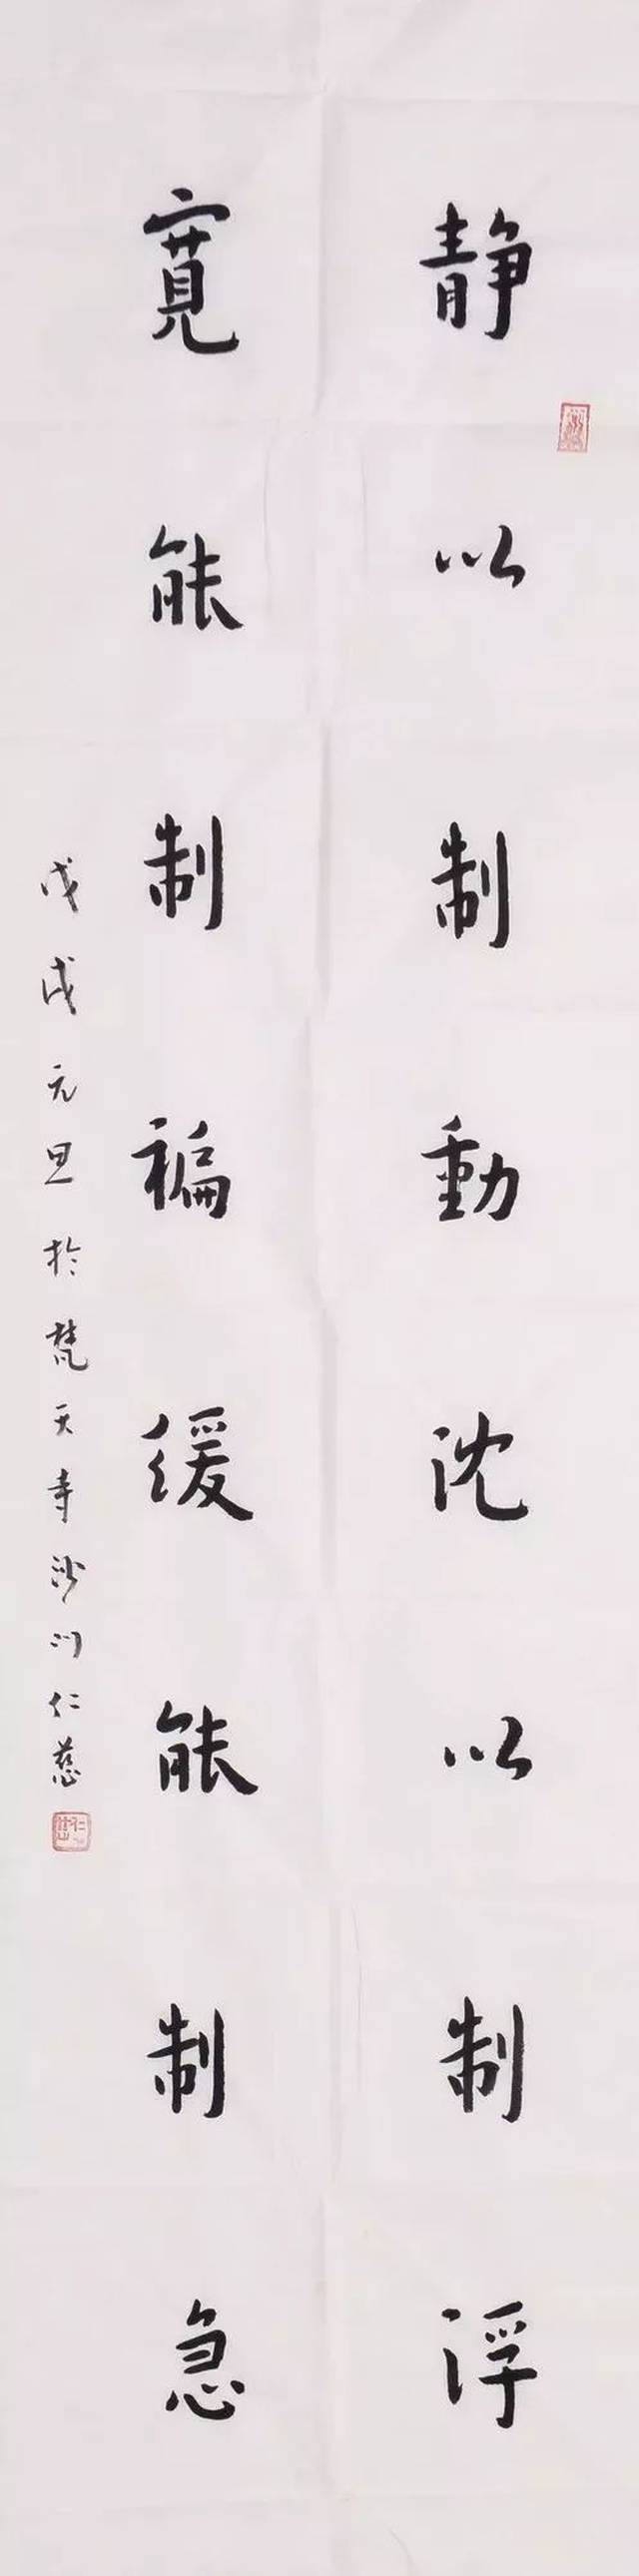 静以制動沈以制浮
寛能制褊緩能制急
戊戌元旦於梵天寺沙门仁慈